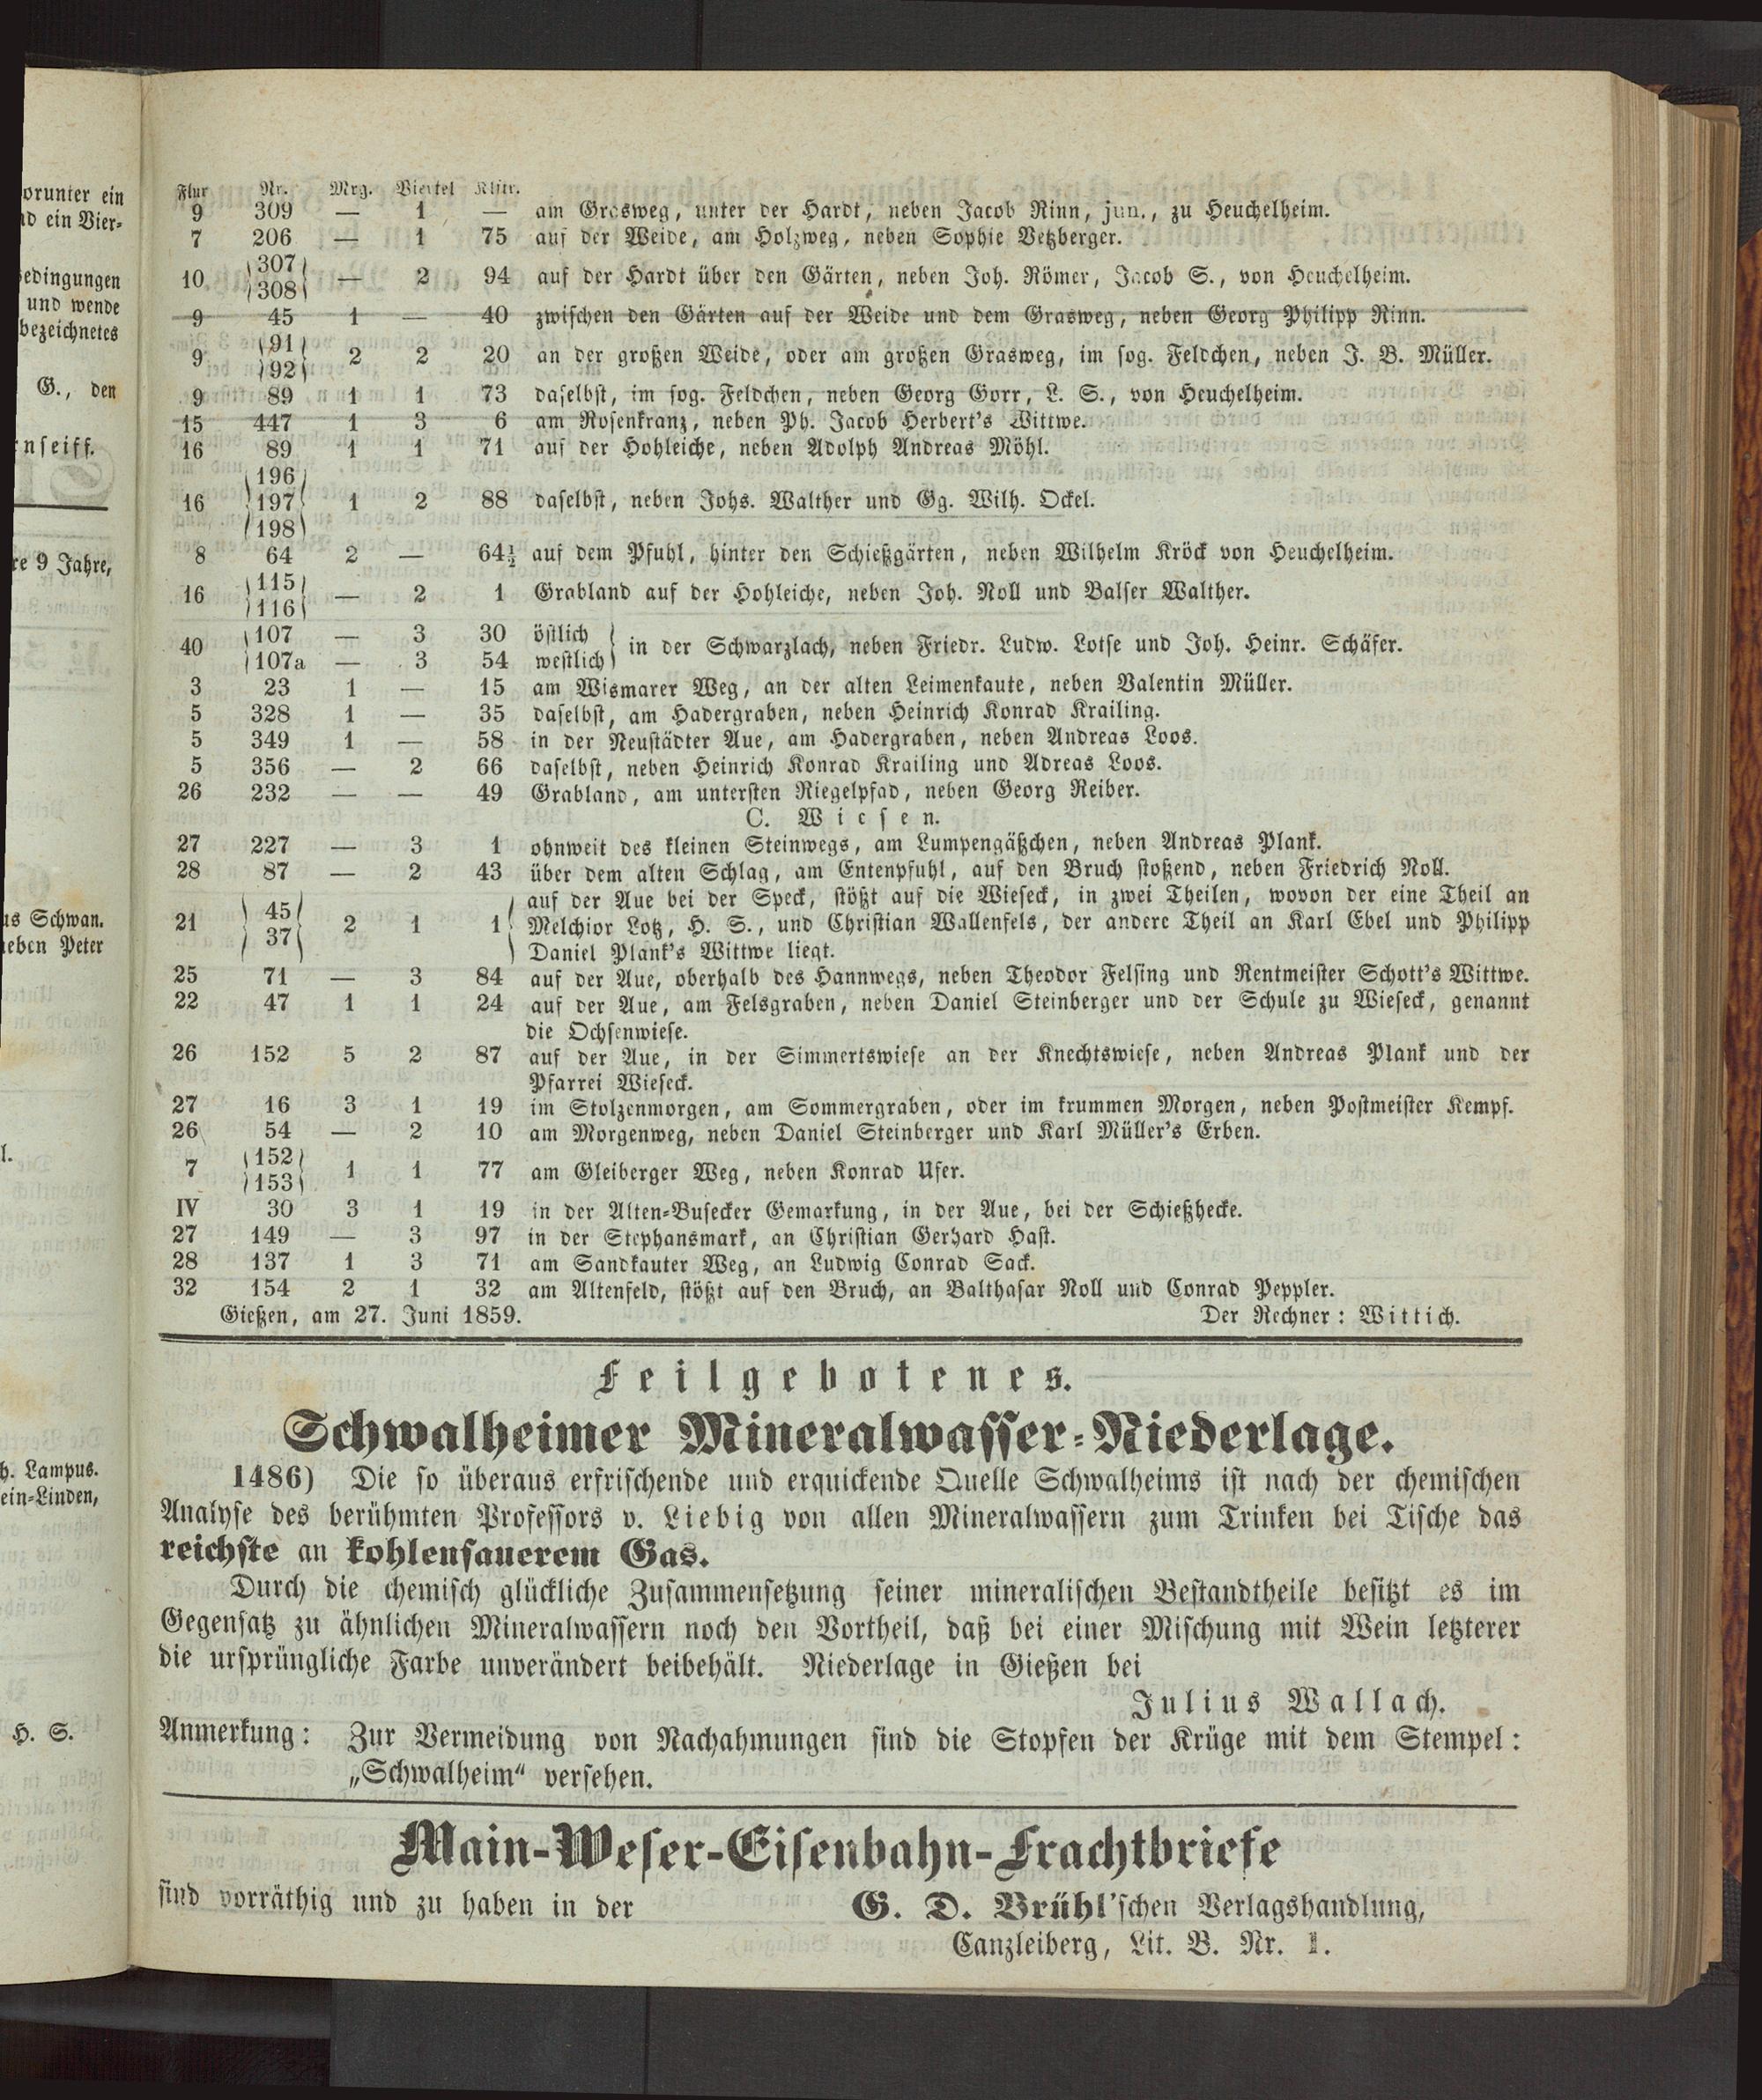 orunter ein
nd ein Vier-
bedingungen
und wende
bezeichnetes
G., den
rnseiff.
re 9 Jahre,
us Schwan.
neben Peter
l.
h. Lampus.
ein-Linden,
H. S.
Flur Nr. Mrg. Viertel Klftr.
9 309 — 1 — am Grasweg, unter der Hardt, neben Jacob Rinn, jun., zu Heuchelheim.
7 206 — 1 75 auf der Weide, am Holzweg, neben Sophie Vetzberger.
10 307 308 — 2 94 auf der Hardt über den Gärten, neben Joh. Römer, Jacob S., von Heuchelheim.
9 45 1 — 40 zwischen den Gärten auf der Weide und dem Grasweg, neben Georg Philipp Rinn.
9 91 92 2 2 20 an der großen Weide, oder am großen Grasweg, im sog. Feldchen, neben J. B. Müller.
9 89 1 1 73 daselbst, im sog. Feldchen, neben Georg Gorr, L. S., von Heuchelheim.
15 447 1 3 6 am Rosenkranz, neben Ph. Jacob Herbert's Wittwe.
16 89 1 1 71 auf der Hohleiche, neben Adolph Andreas Möhl.
16 196 197 198 1 2 88 daselbst, neben Johs. Walther und Gg. Wilh. Ockel.
8 64 2 — 64½ auf dem Pfuhl, hinter den Schießgärten, neben Wilhelm Kröck von Heuchelheim.
16 115 116 — 2 1 Grabland auf der Hohleiche, neben Joh. Noll und Balser Walther.
40 107 — 3 30 östlich
107a — 3 54 westlich in der Schwarzlach, neben Friedr. Ludw. Lotse und Joh. Heinr. Schäfer.
3 23 1 — 15 am Wismarer Weg, an der alten Leimenkaute, neben Valentin Müller.
5 328 1 — 35 daselbst, am Hadergraben, neben Heinrich Konrad Krailing.
5 349 1 — 58 in der Neustädter Aue, am Hadergraben, neben Andreas Loos.
5 356 — 2 66 daselbst, neben Heinrich Konrad Krailing und Adreas Loos.
26 232 — — 49 Grabland, am untersten Riegelpfad, neben Georg Reiber.
C. Wiesen.
27 227 — 3 1 ohnweit des kleinen Steinwegs, am Lumpengäßchen, neben Andreas Plank.
28 87 — 2 43 über dem alten Schlag, am Entenpfuhl, auf den Bruch stoßend, neben Friedrich Noll.
auf der Aue bei der Speck, stößt auf die Wieseck, in zwei Theilen, wovon der eine Theil an
21 45 37 2 1 1 Melchior Lotz, H. S., und Christian Wallenfels, der andere Theil an Karl Ebel und Philipp
Daniel Plank's Wittwe liegt.
25 71 — 3 84 auf der Aue, oberhalb des Hannwegs, neben Theodor Felsing und Rentmeister Schott's Wittwe.
22 47 1 1 24 auf der Aue, am Felsgraben, neben Daniel Steinberger und der Schule zu Wieseck, genannt
die Ochsenwiese.
26 152 5 2 87 auf der Aue, in der Simmertswiese an der Knechtswiese, neben Andreas Plank und der
Pfarrei Wieseck.
27 16 3 1 19 im Stolzenmorgen, am Sommergraben, oder im krummen Morgen, neben Postmeister Kempf.
26 54 — 2 10 am Morgenweg, neben Daniel Steinberger und Karl Müller's Erben.
7 152 153 1 1 77 am Gleiberger Weg, neben Konrad Ufer.
IV 30 3 1 19 in der Alten-Busecker Gemarkung, in der Aue, bei der Schießhecke.
27 149 — 3 97 in der Stephansmark, an Christian Gerhard Hast.
28 137 1 3 71 am Sandkauter Weg, an Ludwig Conrad Sack.
32 154 2 1 32 am Altenfeld, stößt auf den Bruch, an Balthasar Noll und Conrad Peppler.
Gießen, am 27. Juni 1859. Der Rechner: Wittich.
Feilgebotenes.
Schwalheimer Mineralwasser-Niederlage.
1486) Die so überaus erfrischende und erquickende Quelle Schwalheims ist nach der chemischen
Analyse des berühmten Professors v. Liebig von allen Mineralwassern zum Trinken bei Tische das
reichste an kohlensauerem Gas.
Durch die chemisch glückliche Zusammensetzung seiner mineralischen Bestandtheile besitzt es im
Gegensatz zu ähnlichen Mineralwassern noch den Vortheil, daß bei einer Mischung mit Wein letzterer
die ursprüngliche Farbe unverändert beibehält. Niederlage in Gießen bei
Julius Wallach.
Anmerkung: Zur Vermeidung von Nachahmungen sind die Stopfen der Krüge mit dem Stempel:
„Schwalheim“ versehen.
Main-Weser-Eisenbahn-Frachtbriefe
sind vorräthig und zu haben in der G. D. Brühl'schen Verlagshandlung,
Canzleiberg, Lit. B. Nr. 1.